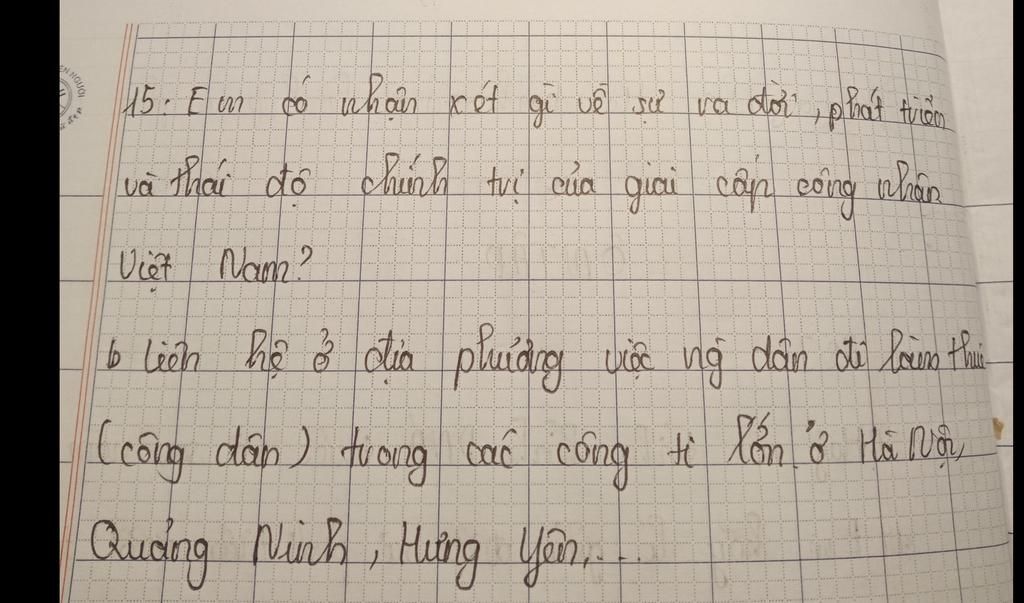 15. Em có nhận xét gì về sự ra đời, phát triển
và thái độ chính trị của giai cấp công nhân
Việt Nam?
b Liên hệ ở địa phương việc ng dân đi làm thuê
(công dân) trong các công ti lớn ở Hà Nội,
Quảng Ninh, Hưng Yên,...